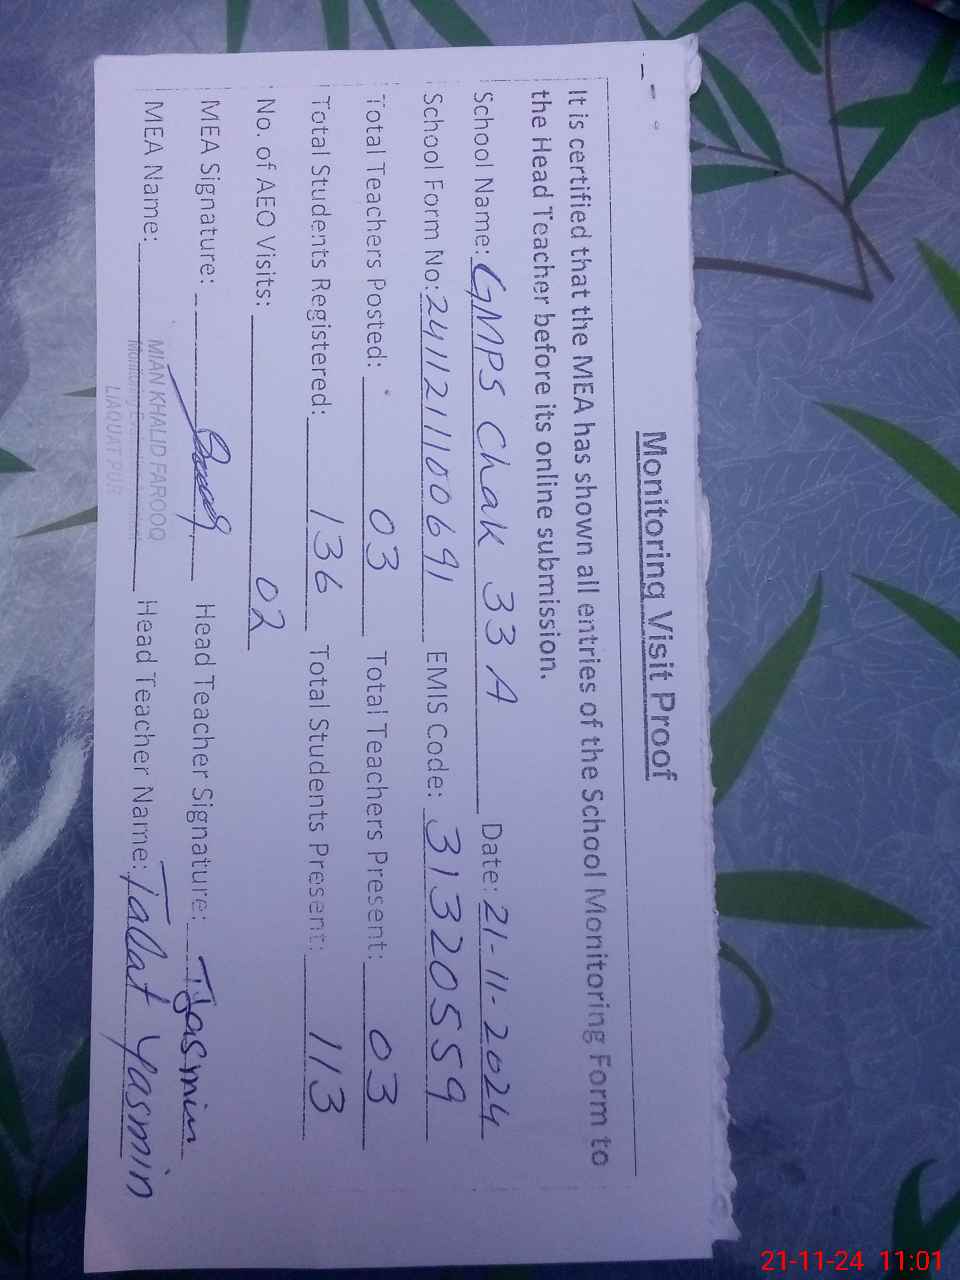 Monitoring Visit Proof
It is certified that the MEA has shown all entries of the School Monitoring Form to
the Head Teacher before its online submission.
School Name: GMPS Chak 33 A Date: 21-11-2024
School Form No: 2411211100691 EMIS Code: 31320559
Total Teachers Posted: 03 Total Teachers Present: 03
Total Students Registered: 136 Total Students Present: 113
No. of AEO Visits: 02
MEA Signature: Head Teacher Signature: TYasmin
MEA Name: Head Teacher Name: Tallat Yasmin
MIAN KHALID FAROOQ
LIAQUAT PUR
21-11-24 11:01